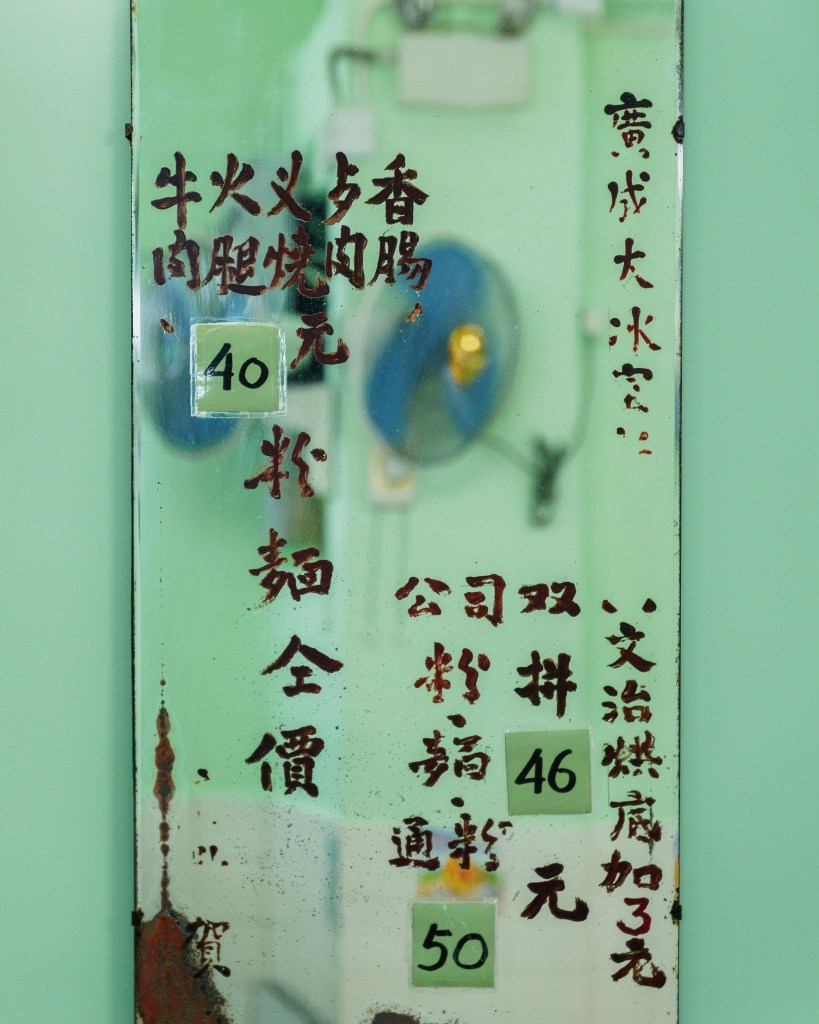 廣成大冰
文治烘底加3元
双拼46元
公司粉、麵、通粉
50
香腸
歺肉
义燒
火腿
牛肉
40元
粉麵仝價
賀